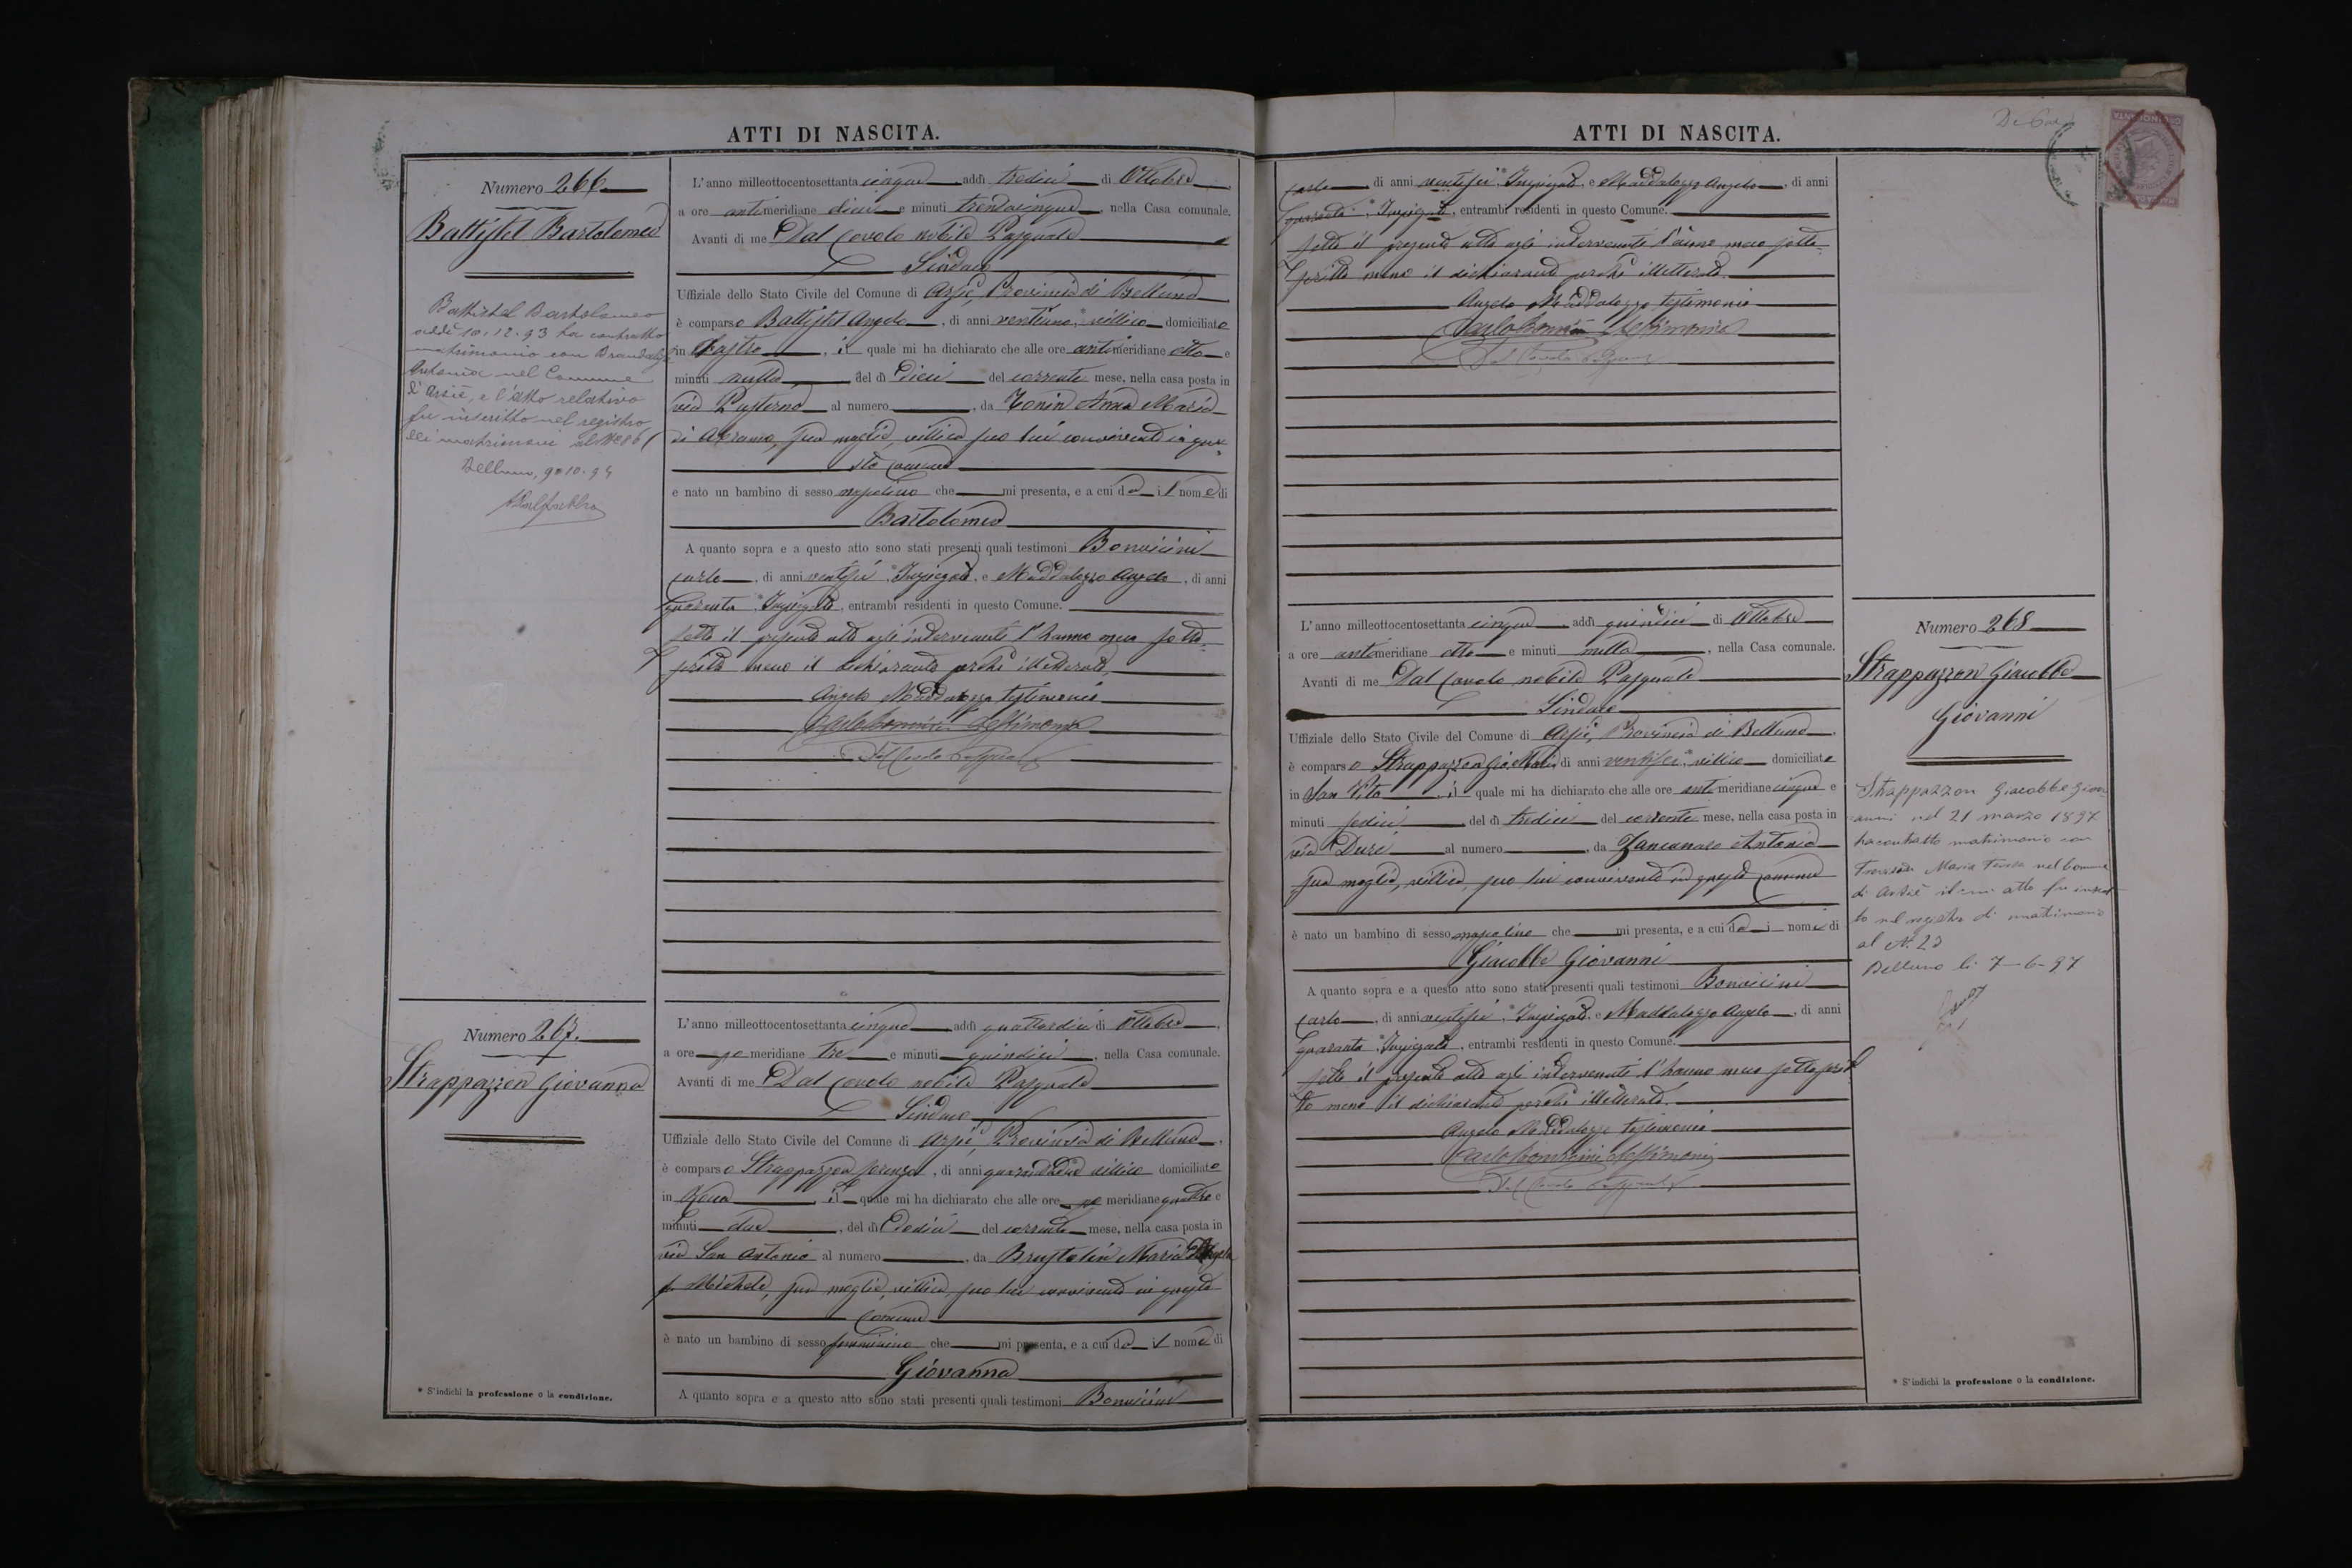 ATTI DI NASCITA.
Numero 266
Battistel Bartolomeo
Battistel Bartolomeo
addì 10.12.93 ha contratto
matrimonio con
Antonia nel Comune
d'Arsiè, e l'atto relativo
fu inscritto nel registro
dei matrimoni al N
Belluno,
L'anno milleottocentosettanta cinque addì tredici di Ottobre,
a ore antimeridiane dieci e minuti trentacinque, nella Casa comunale.
Avanti di me Dal Covolo nobile Pasquale
Sindaco
Uffiziale dello Stato Civile del Comune di Arsiè, Provincia di Belluno
è comparso Battistel Angelo, di anni ventiuno, villico domiciliato
in Fastro, il quale mi ha dichiarato che alle ore antimeridiane otto e
minuti nulla, del dì dieci del corrente mese, nella casa posta in
via Pusterno al numero , da Tonin Anna Maria
di Abramo, sua moglie, villica seco lui convivente in que-
sto Comune
è nato un bambino di sesso mascolino che mi presenta, e a cui dà il nome di
Bartolomeo
A quanto sopra e a questo atto sono stati presenti quali testimoni Bonvicini
Carlo, di anni ventisei, * Impiegato, e Maddalozzo Angelo, di anni
quaranta * Impiegato, entrambi residenti in questo Comune.
Letto il presente atto agli intervenuti l'hanno meco sotto-
scritto meno il dichiarante perché illetterato.
Angelo Maddalozzo testimonio
Carlo Bonvicini testimonio
Dal Covolo Pasquale
Numero 267.
Strappazzon Giovanna
L'anno milleottocentosettanta cinque addì quattordici di Ottobre,
a ore pomeridiane tre e minuti quindici, nella Casa comunale.
Avanti di me Dal Covolo nobile Pasquale
Sindaco
Uffiziale dello Stato Civile del Comune di Arsiè, Provincia di Belluno,
è comparso Strappazzon Lorenzo, di anni villico domiciliato
in Rocca, il quale mi ha dichiarato che alle ore pomeridiane quattro e
minuti due, del dì dodici del corrente mese, nella casa posta in
via San Antonio al numero , da Brustolin Maria Angela
fu Michele, sua moglie, villica, seco lui convivente in questo
Comune
è nato un bambino di sesso femminino che mi presenta, e a cui dà il nome di
Giovanna
A quanto sopra e a questo atto sono stati presenti quali testimoni Bonvicini
* S'indichi la professione o la condizione.
ATTI DI NASCITA.
Carlo, di anni ventisei * Impiegato, e Maddalozzo Angelo, di anni
quaranta * Impiegato, entrambi residenti in questo Comune.
Letto il presente atto agli intervenuti l'anno meco sotto-
scritto meno il dichiarante perché illetterato.
Angelo Maddalozzo testimonio
Carlo Bonvicini testimonio
Dal Covolo Pasquale
L'anno milleottocentosettanta cinque addì quindici di Ottobre
a ore antimeridiane otto e minuti nulla, nella Casa comunale.
Avanti di me Dal Covolo nobile Pasquale
Sindaco
Uffiziale dello Stato Civile del Comune di Arsiè, Provincia di Belluno.
è comparso Strappazzon Gio.Maria di anni ventisei, * villico domiciliato
in San Vito, il quale mi ha dichiarato che alle ore antimeridiane cinque e
minuti sedici, del dì tredici del corrente mese, nella casa posta in
via Duri al numero , da Zancanaro Antonia
sua moglie, villica, seco lui convivente in questo Comune
è nato un bambino di sesso mascolino che mi presenta, e a cui dà i nomi di
Giacobbe Giovanni
A quanto sopra e a questo atto sono stati presenti quali testimoni Bonvicini
Carlo, di anni ventisei, * Impiegato, e Maddalozzo Angelo, di anni
quaranta * Impiegato, entrambi residenti in questo Comune.
Letto il presente atto agli intervenuti l'hanno meco sottoscrit-
to meno il dichiarante perché illetterato.
Angelo Maddalozzo testimonio
Carlo Bonvicini testimonio
Dal Covolo Pasquale
Numero 268
Strappazzon Giacobbe
Giovanni
Strappazzon Giacobbe Gio-
vanni nel 21 marzo 1897
ha contratto matrimonio con
Maria Teresa nel Comune
di Arsiè il cui atto fu inscrit-
to nel registro di matrimonio
al N. 23
Belluno li 7-6-97
* S'indichi la professione o la condizione.